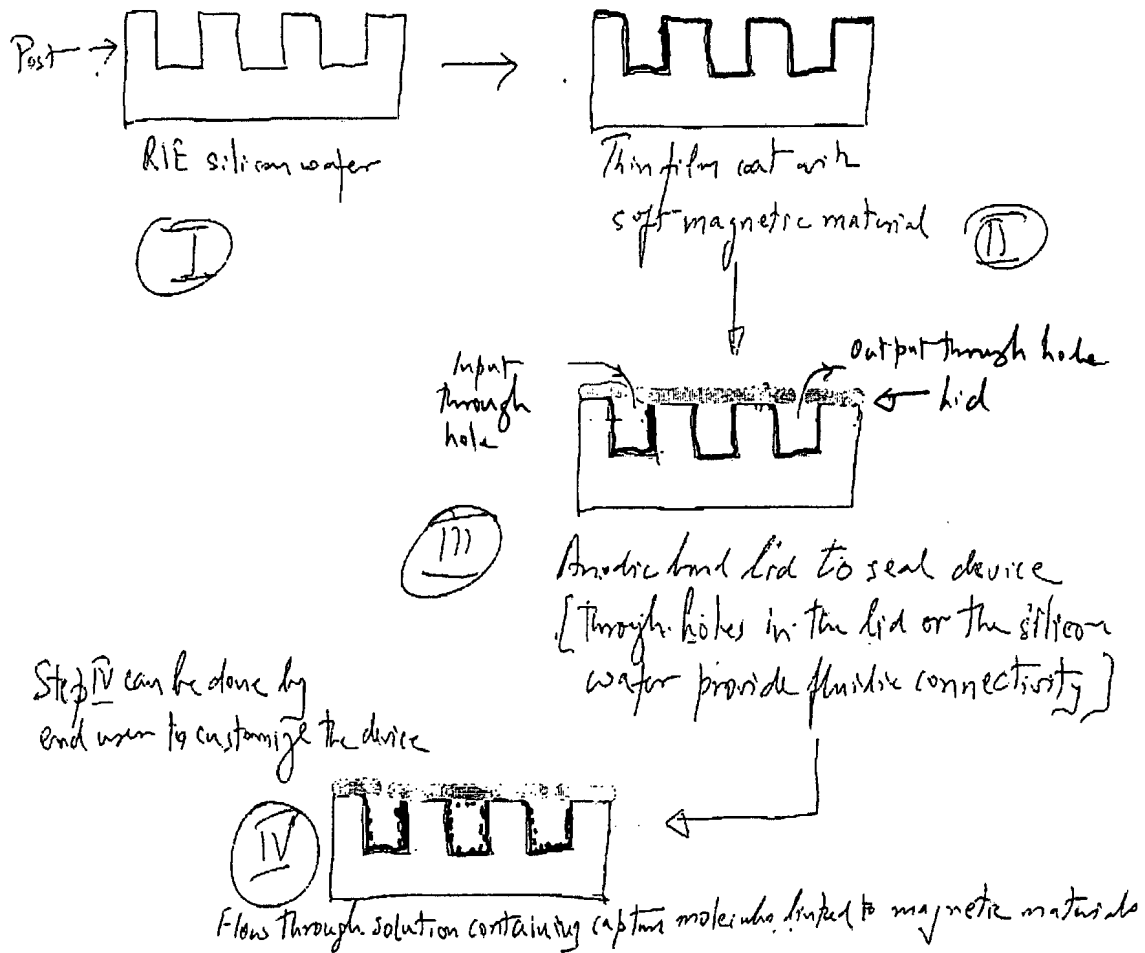 Post →
RIE silicon wafer
I
Thin film coat with
soft magnetic material
II
Input
through
hole
Output through hole
Lid
III
Anodic bond lid to seal device
[through holes in the lid or the silicon
wafer provide fluidic connectivity]
Step IV can be done by
end user to customize the device
IV
Flow through solution containing capture molecules linked to magnetic materials